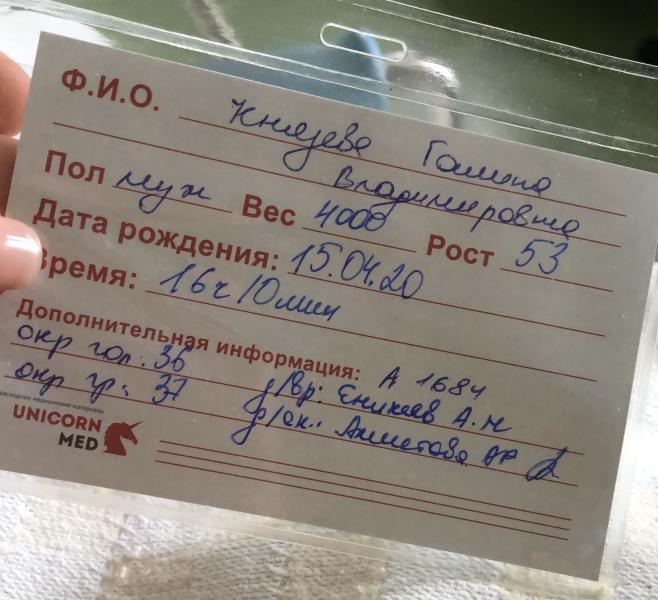 Ф.И.О. Князева Галина
Владимировна
Пол муж Вес 4000 Рост 53
Дата рождения: 15.04.20
Время: 16ч 10мин
Дополнительная информация: А 1684
окр гол: 36 д/вр: Еникеев А.Н.
окр гр: 37 д/ск.: Ахметова АР
расходные медицинские материалы
UNICORN
MED